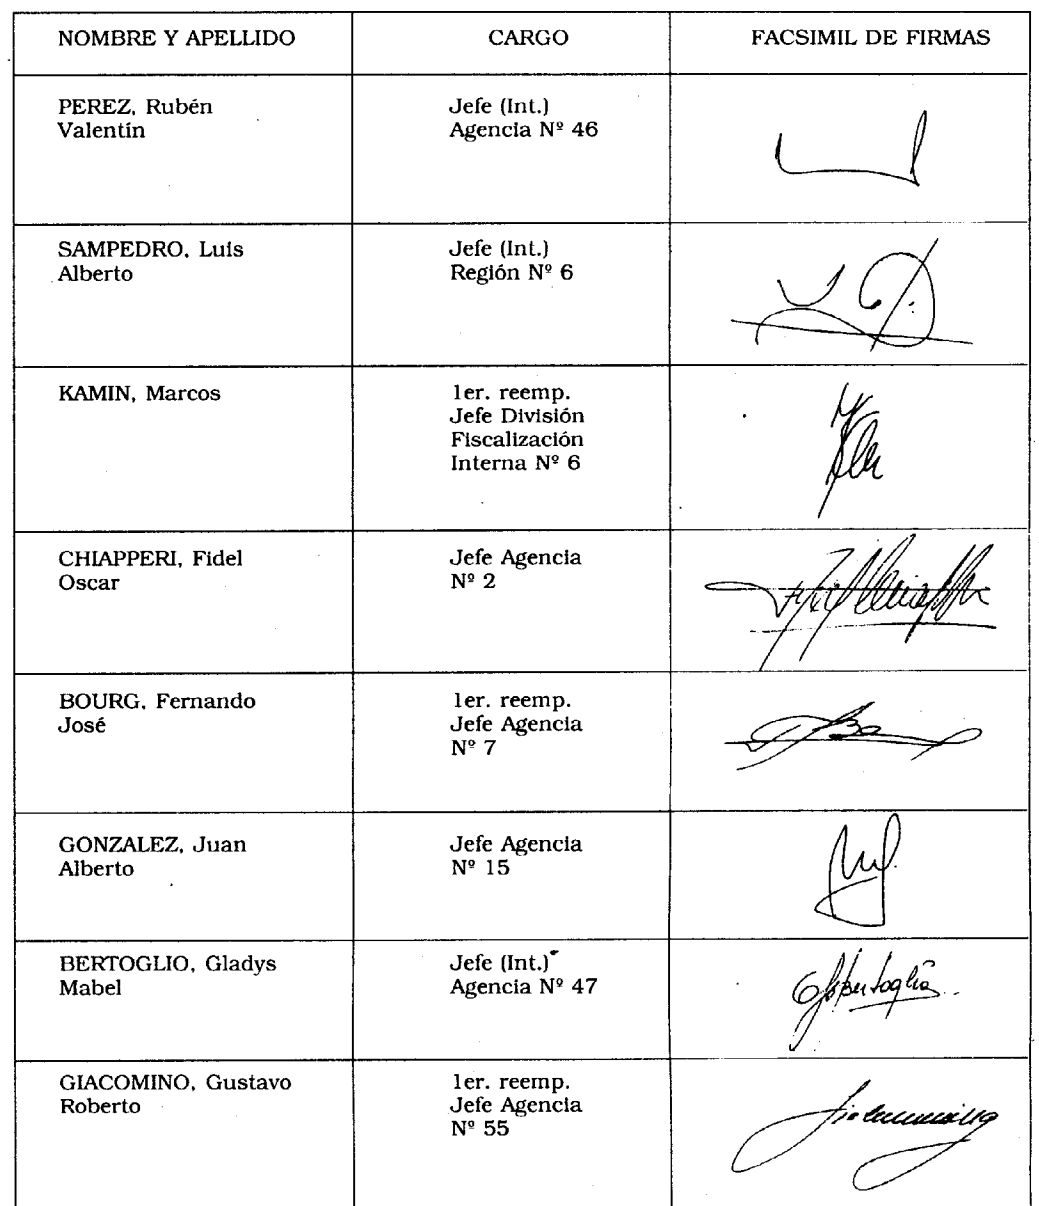 NOMBRE Y APELLIDO CARGO FACSIMIL DE FIRMAS
PEREZ, Rubén
Valentín
Jefe (Int.)
Agencia Nº 46
SAMPEDRO, Luis
Alberto
Jefe (Int.)
Región Nº 6
KAMIN, Marcos
1er. reemp.
Jefe División
Fiscalización
Interna Nº 6
CHIAPPERI, Fidel
Oscar
Jefe Agencia
Nº 2
BOURG, Fernando
José
1er. reemp.
Jefe Agencia
Nº 7
GONZALEZ, Juan
Alberto
Jefe Agencia
Nº 15
BERTOGLIO, Gladys
Mabel
Jefe (Int.)
Agencia Nº 47
GIACOMINO, Gustavo
Roberto
1er. reemp.
Jefe Agencia
Nº 55